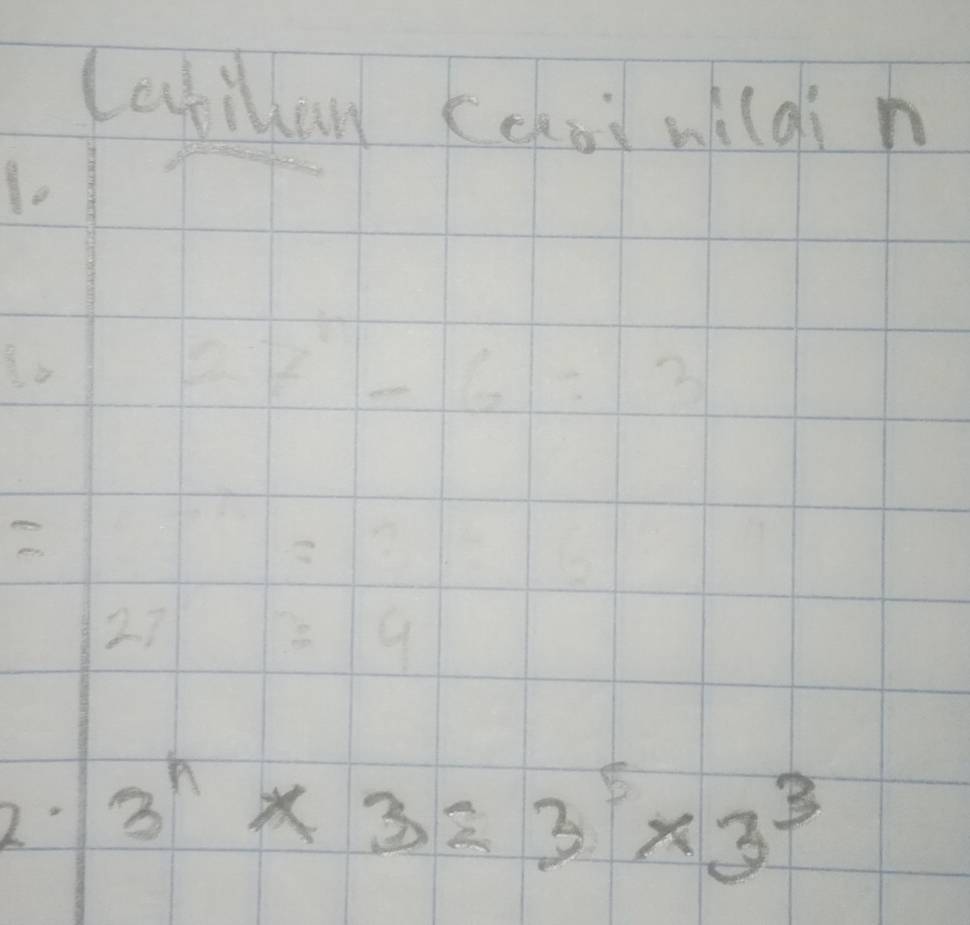 Latihan Cari nilai n
1.
1. 27ⁿ - 6 = 3
=
27 = 9
2. 3ⁿ × 3 = 3⁵ × 3³